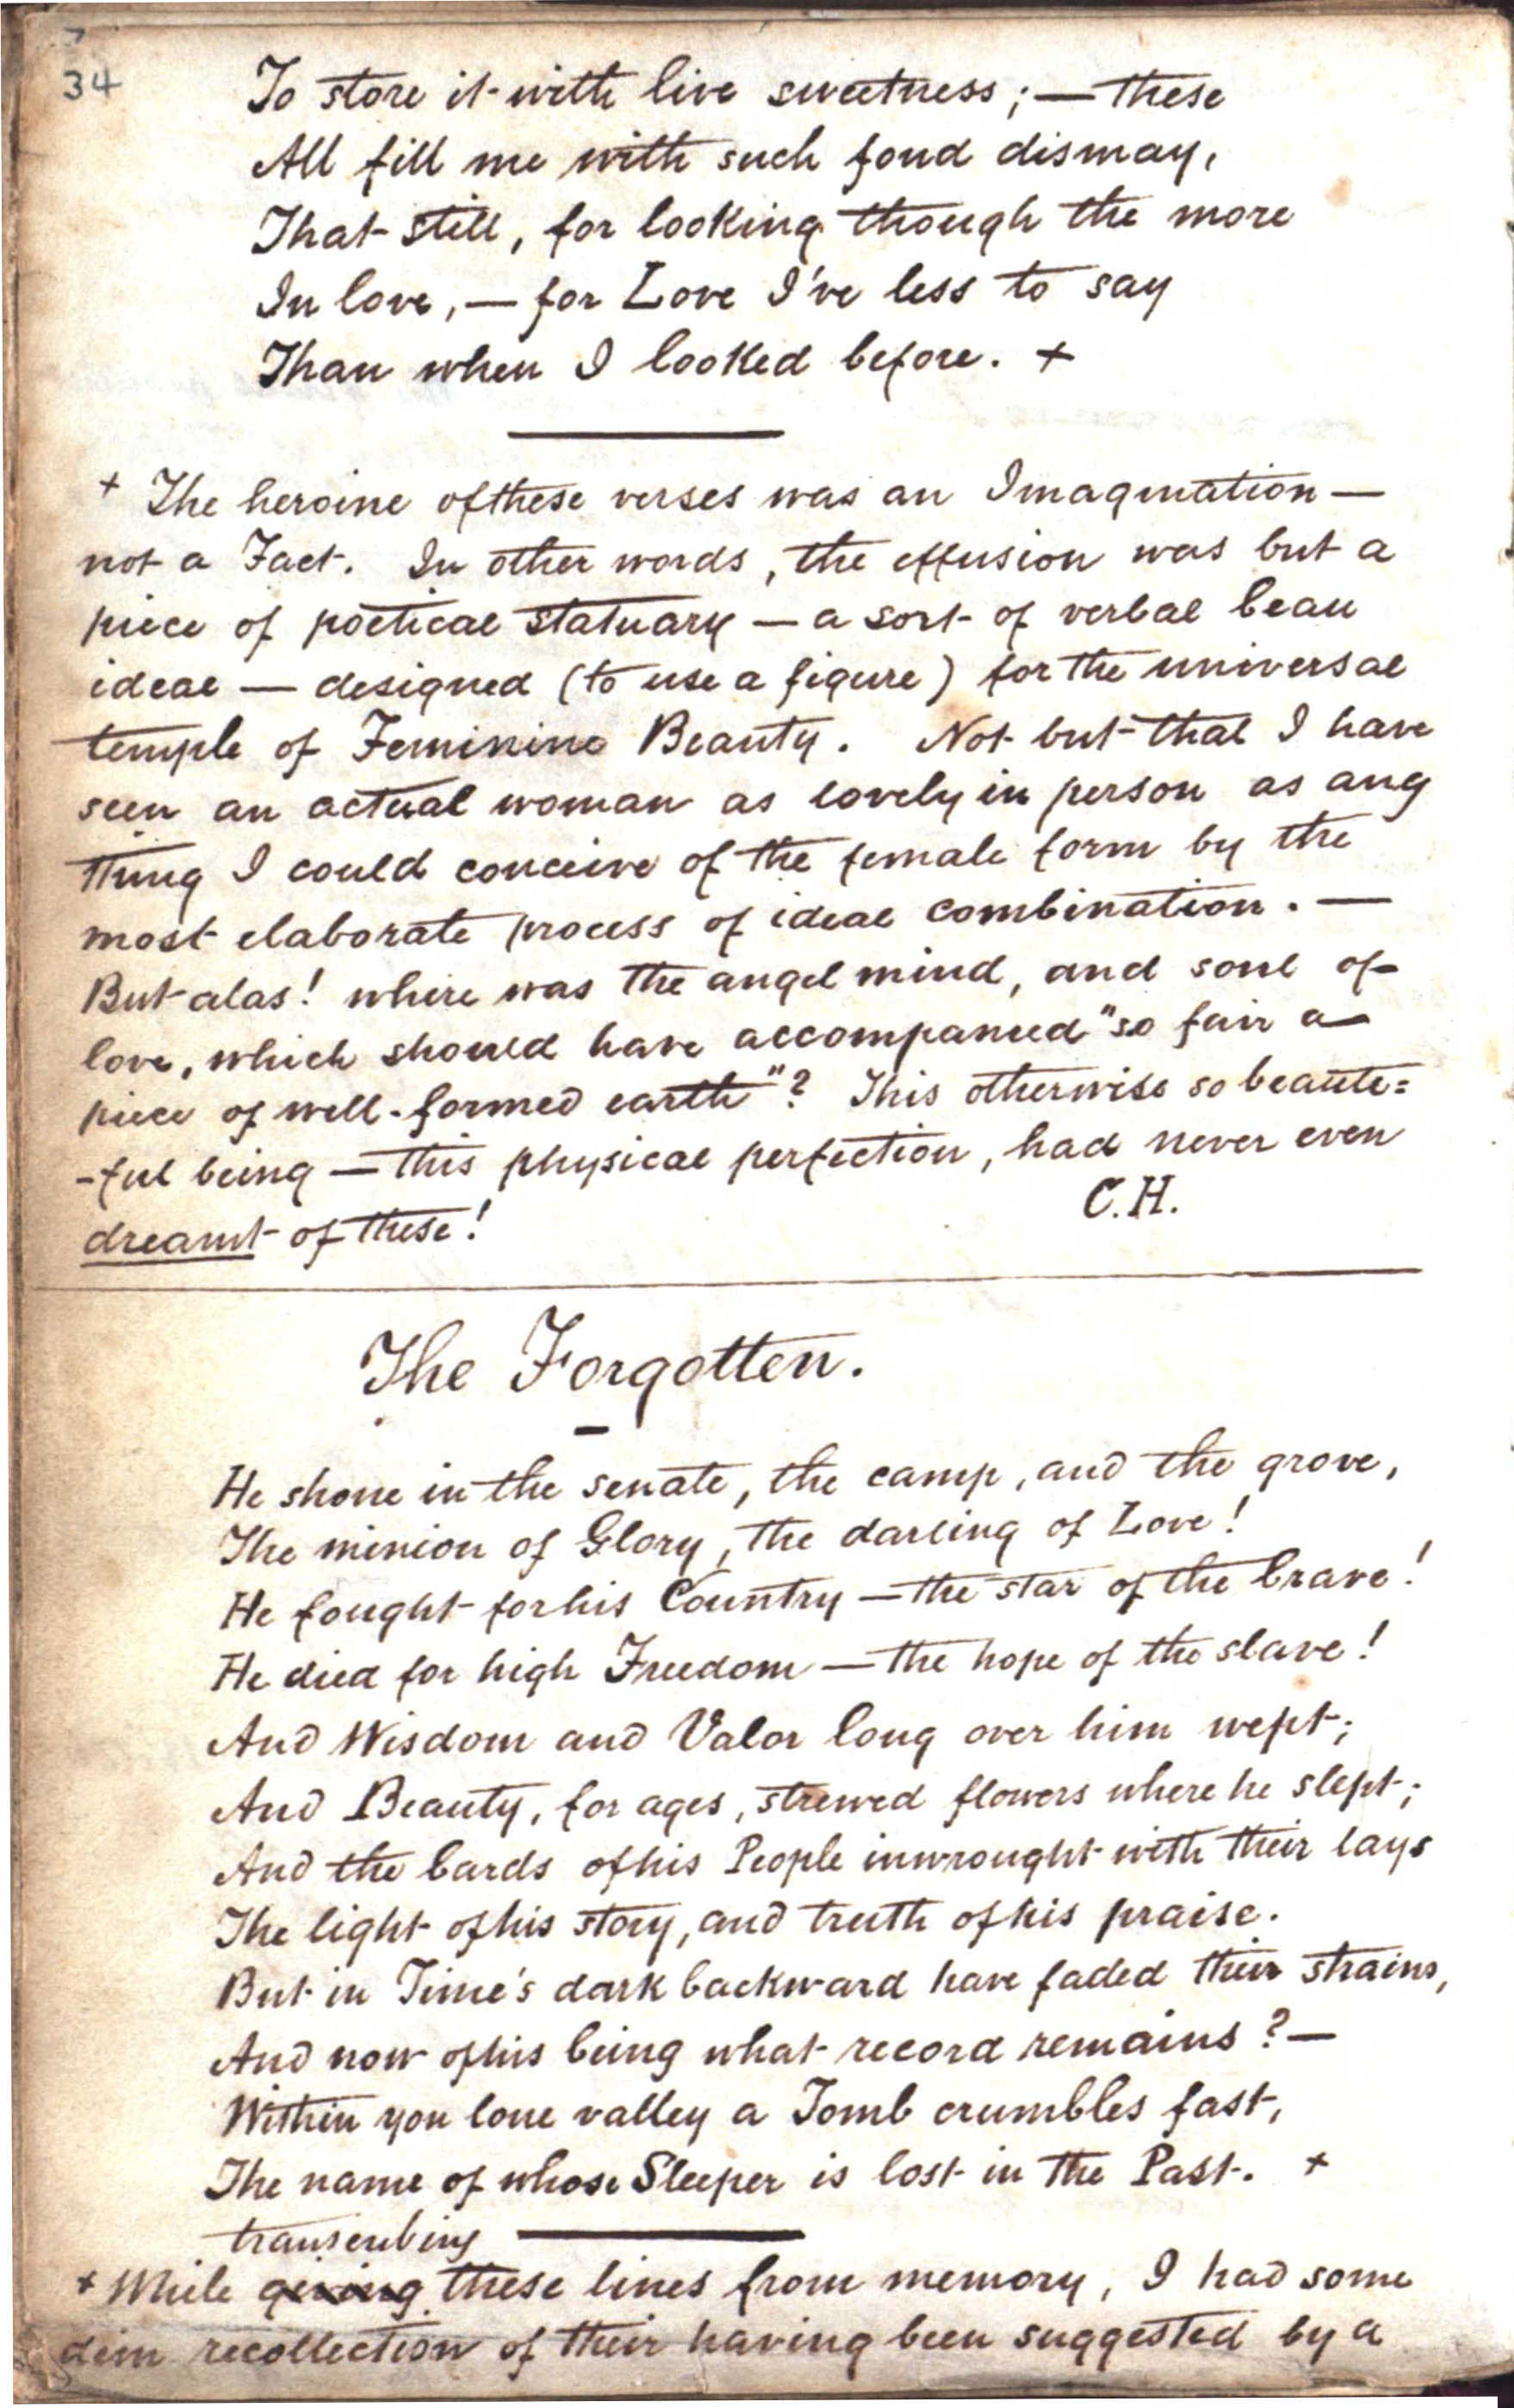 34
To store it with live sweetness; — these
All fill me with such fond dismay,
That still, for looking though the more
In love, — for Love I've less to say
Than when I looked before. +
+ The heroine of these verses was an Imagination —
not a Fact. In other words, the effusion was but a
piece of poetical statuary — a sort of verbal beau
ideal — designed (to use a figure) for the universal
temple of Feminine Beauty. Not but that I have
seen an actual woman as lovely in person as any
thing I could conceive of the female form by the
most elaborate process of ideal combination. —
But alas! where was the angel mind, and soul of
love, which should have accompanied "so fair a
piece of well-formed earth"? This otherwise so beaute=
-ful being — this physical perfection, had never even
dreamt of these!
C.H.
The Forgotten.
He shone in the senate, the camp, and the grove,
The minion of Glory, the darling of Love!
He fought for his Country — the star of the brave!
He died for high Freedom — the hope of the slave!
And Wisdom and Valor long over him wept;
And Beauty, for ages, strewed flowers where he slept;
And the bards of his People inwrought with their lays
The light of his story, and truth of his praise.
But in Time's dark backward have faded their strains,
And now of his being what record remains? —
Within yon lone valley a Tomb crumbles fast,
The name of whose Sleeper is lost in the Past. +
transcribing
+ While giving these lines from memory, I had some
dim recollection of their having been suggested by a